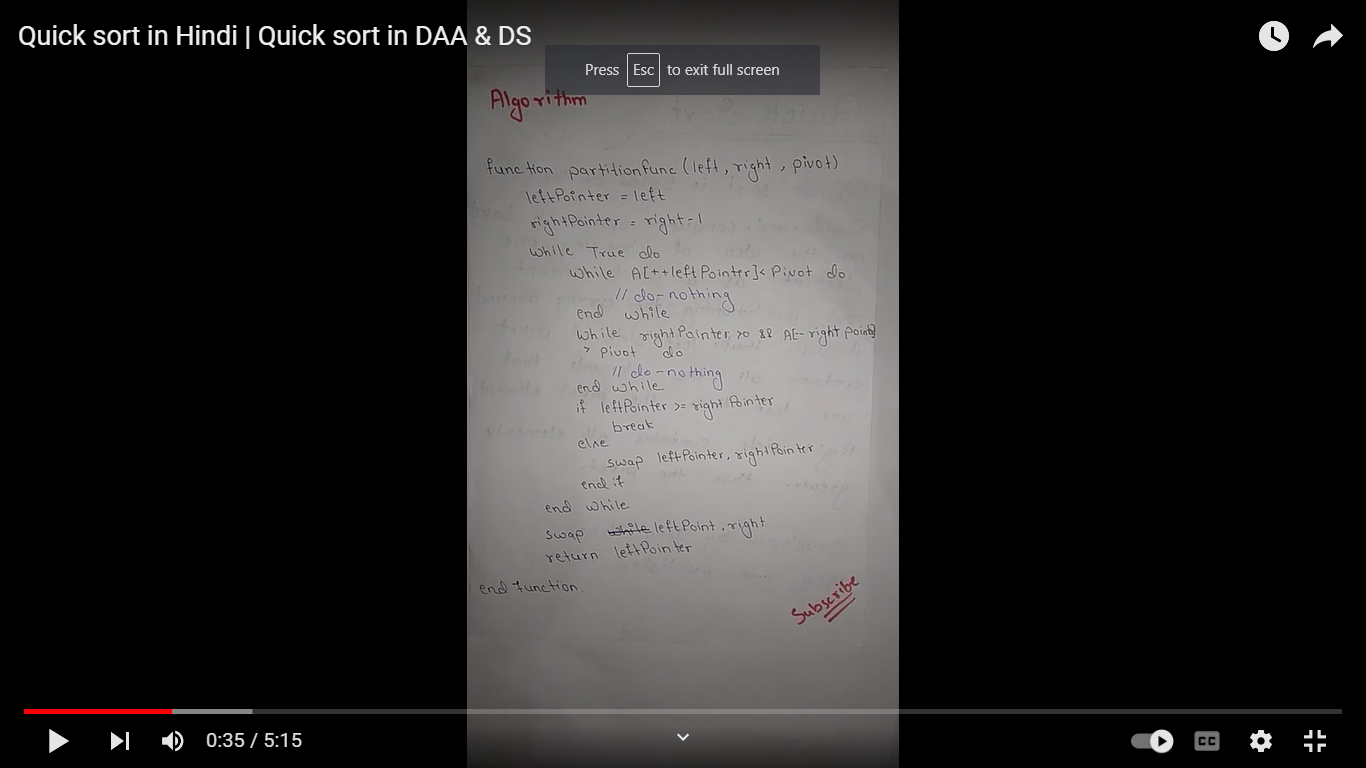 Quick sort in Hindi | Quick sort in DAA & DS
Press Esc to exit full screen
Algorithm
function partitionFunc (left, right, pivot)
leftPointer = left
rightPointer = right-1
while True do
while A[++leftPointer]< Pivot do
// do-nothing
end while
while rightPointer >0 && A[--rightPointer]
> Pivot do
// do-nothing
end while
if leftPointer >= rightPointer
break
else
swap leftPointer, rightPointer
end if
end while
swap while leftPoint, right
return leftPointer
end function.
Subscribe
0:35 / 5:15
CC